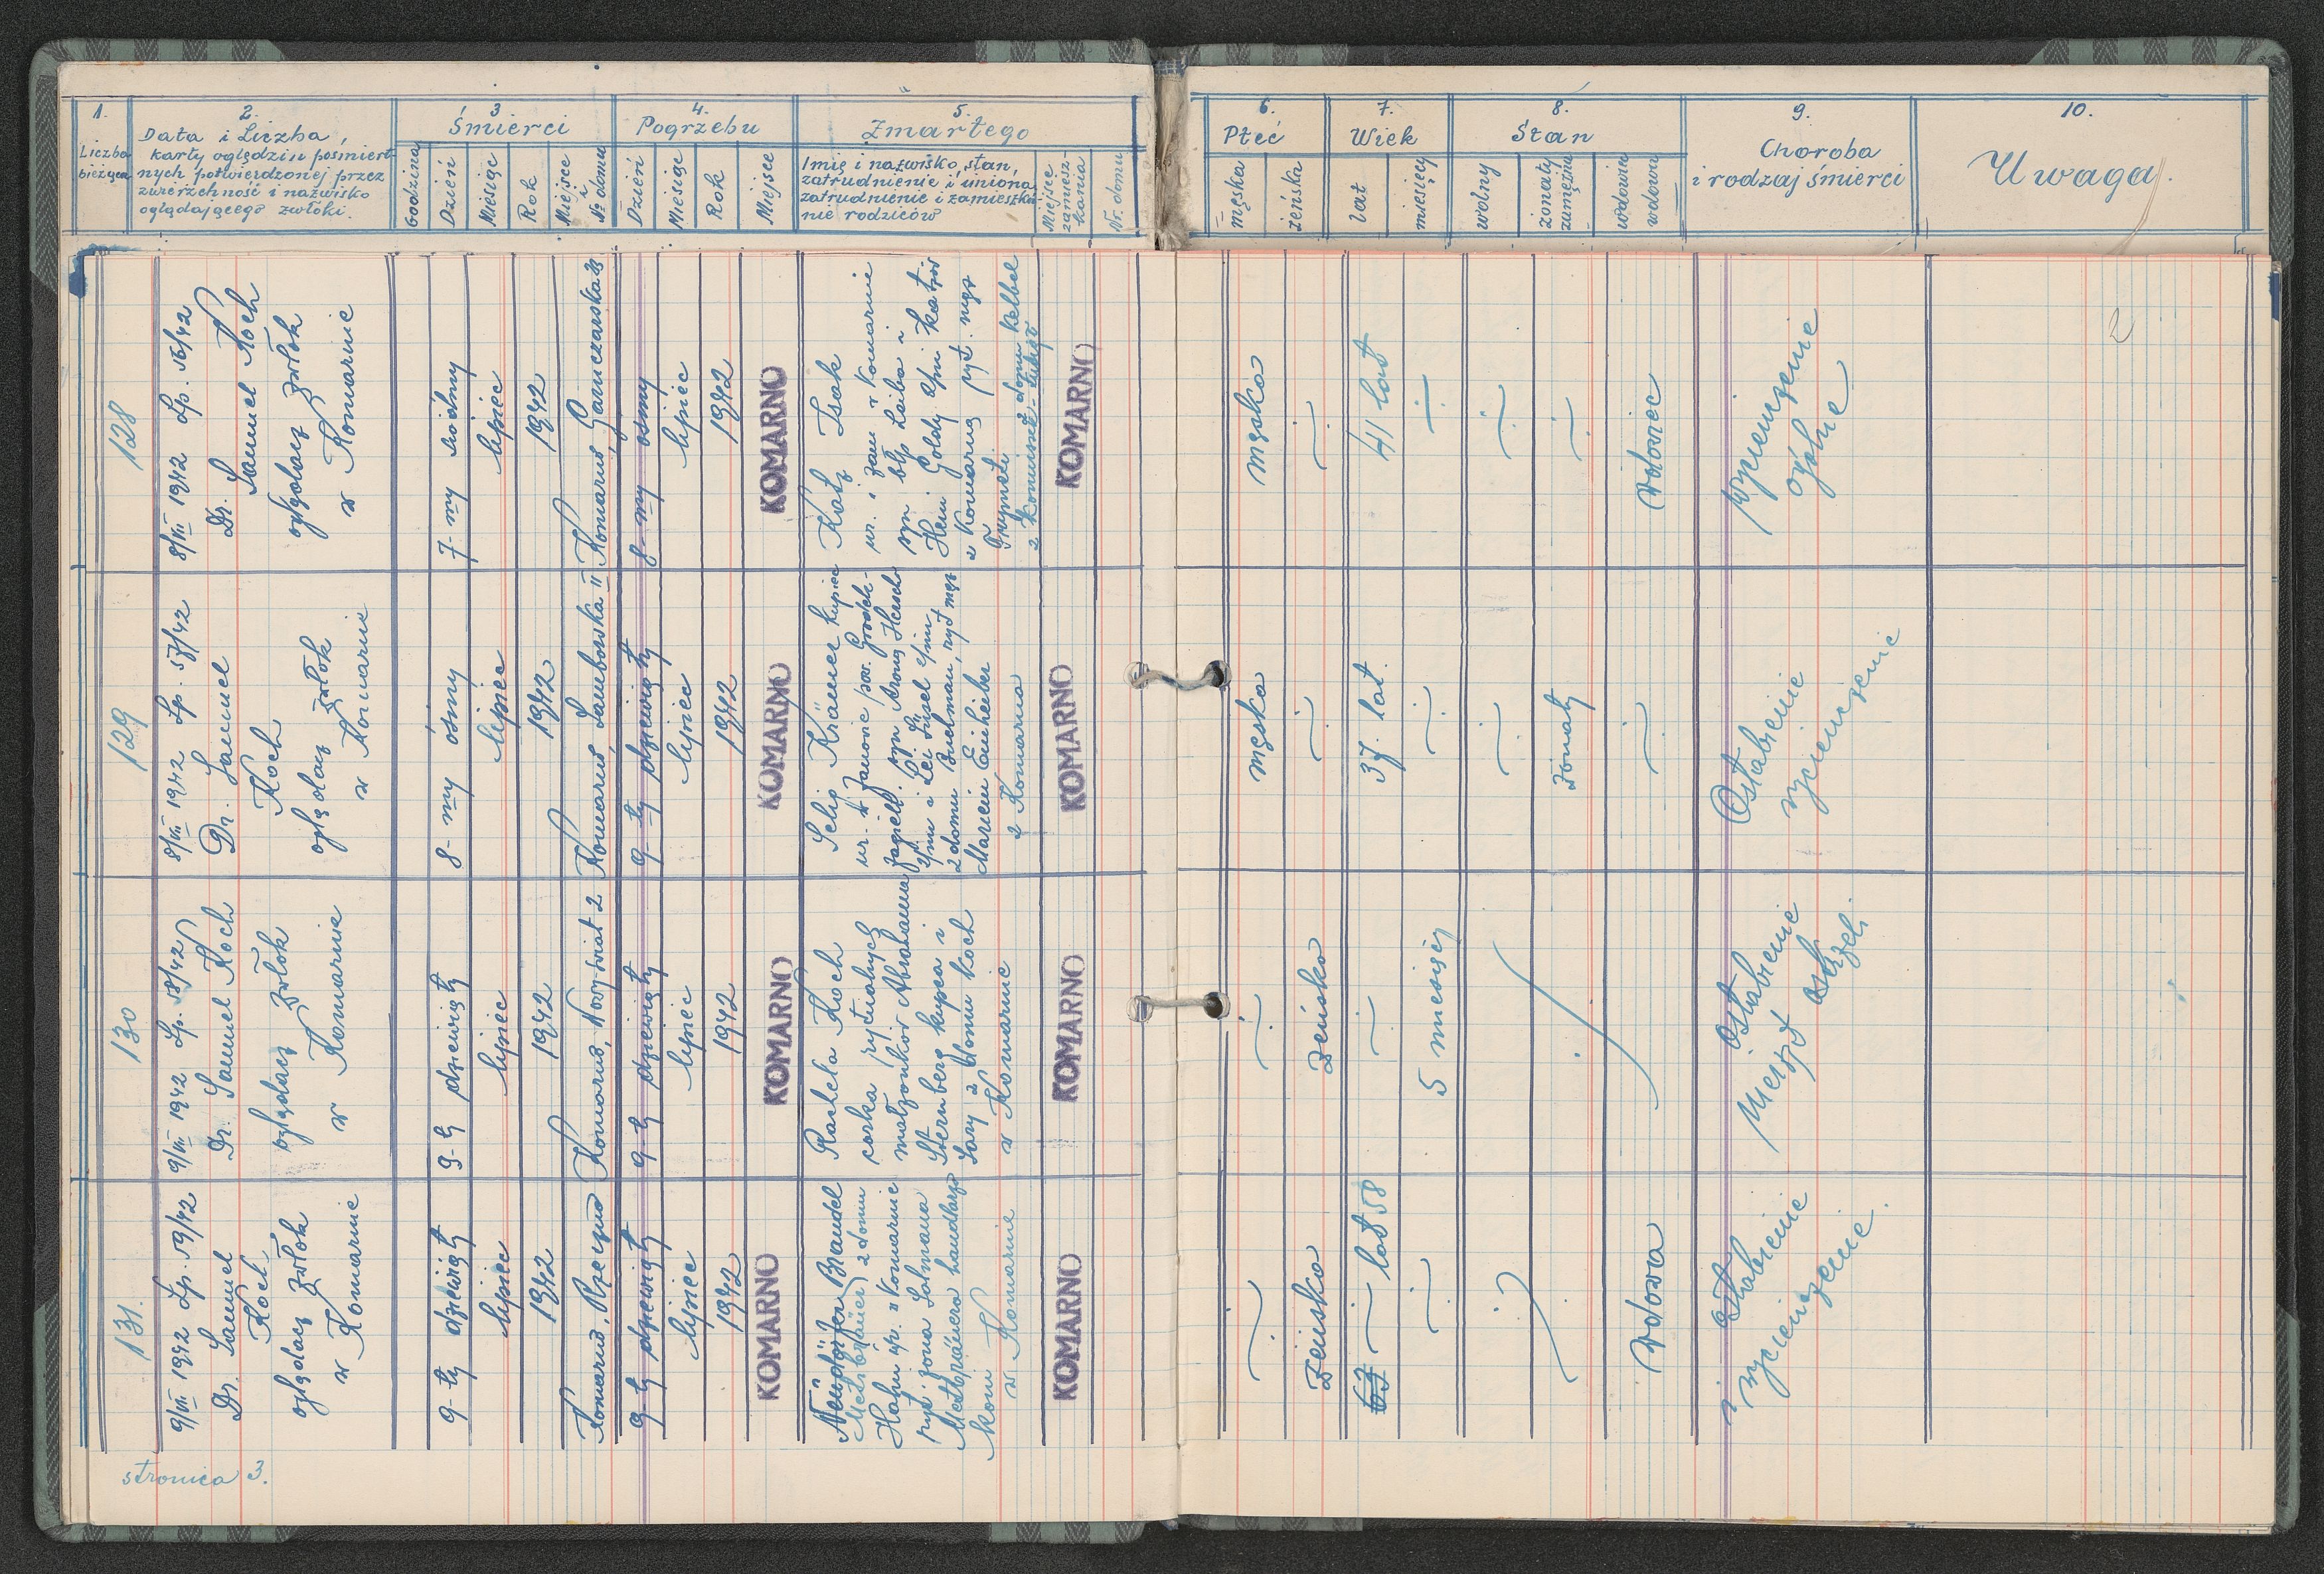 1.
Liczba
bieżąca
2.
Data i Liczba
karty oględzin pośmiert-
nych potwierdzonej przez
zwierzchność i nazwisko
oglądającego zwłoki.
3
Śmierci
Godzina
Dzień
Miesiąc
Rok
Miejsce
i
№ domu
4.
Pogrzebu
Dzień
Miesiąc
Rok
Miejsce
5.
Zmarłego
Imię i nazwisko, stan,
zatrudnienie i imiona,
zatrudnienie i zamieszka-
nie rodziców
Miejsce
zamiesz-
kania
Nr. domu
6.
Płeć
męska
żeńska
7.
Wiek
lat
miesięcy
8.
Stan
wolny
żonaty
zamężna
wdowiec
wdowa
9.
Choroba
i rodzaj śmierci
10.
Uwaga.
128
8/VII 1942 Lp. 56/42
Dr.
Samuel Koch
oglądacz zwłok
w Komarnie
7-my siódmy
lipiec
1942
Komarno Garnczarska
8-my ósmy
lipiec
1942
KOMARNO
Katz Isak
ur. i zam w Komarnie
syn błp Laiba i
Heni Goldy
z Komarna ryt. mąż
z domu Kelbel
KOMARNO
męska
41 lat
wdowiec
wycieńczenie
ogólne
2
129
8/VII 1942 Lp. 57/42
Dr. Samuel
Koch
oglądacz zwłok
w Komarnie
8-my ósmy
lipiec
1942
Komarno Samborska 11
9-ty dziewiąty
lipiec
1942
KOMARNO
Selig Krämer kupiec
ur. w Janowie pow. Gródek-
Jagiell. syn Arona Herscha
z domu Buchman, ryt mąż
z Komarna
KOMARNO
męska
37. lat
żonaty
Osłabienie
wycieńczenie
130
9/VII 1942 Lp. 58/42
Dr. Samuel Koch
oglądacz zwłok
w Komarnie
9-ty dziewiąty
lipiec
1942
Komarno, Nowy-Świat 2
9-ty dziewiąty
lipiec
1942
KOMARNO
Rachela Koch
córka rytualnych
małżonków Abrahama
Sternberg kupca i
Sary z domu Koch
w Komarnie
KOMARNO
żeńska
5 miesięcy
Osłabienie
131.
9/VII 1942 Lp. 59/42
Dr. Samuel
Koch
oglądacz zwłok
w Komarnie
9-ty dziewiąty
lipiec
1942
Komarno,
9-ty dziewiąty
lipiec
1942
KOMARNO
Brandel
z domu
Hahn ur. w Komarnie
ryt. żona Salmana
handlarza
w Komarnie
KOMARNO
żeńska
63
lat 58
wdowa
osłabienie
i wycieńczenie.
stronica 3.